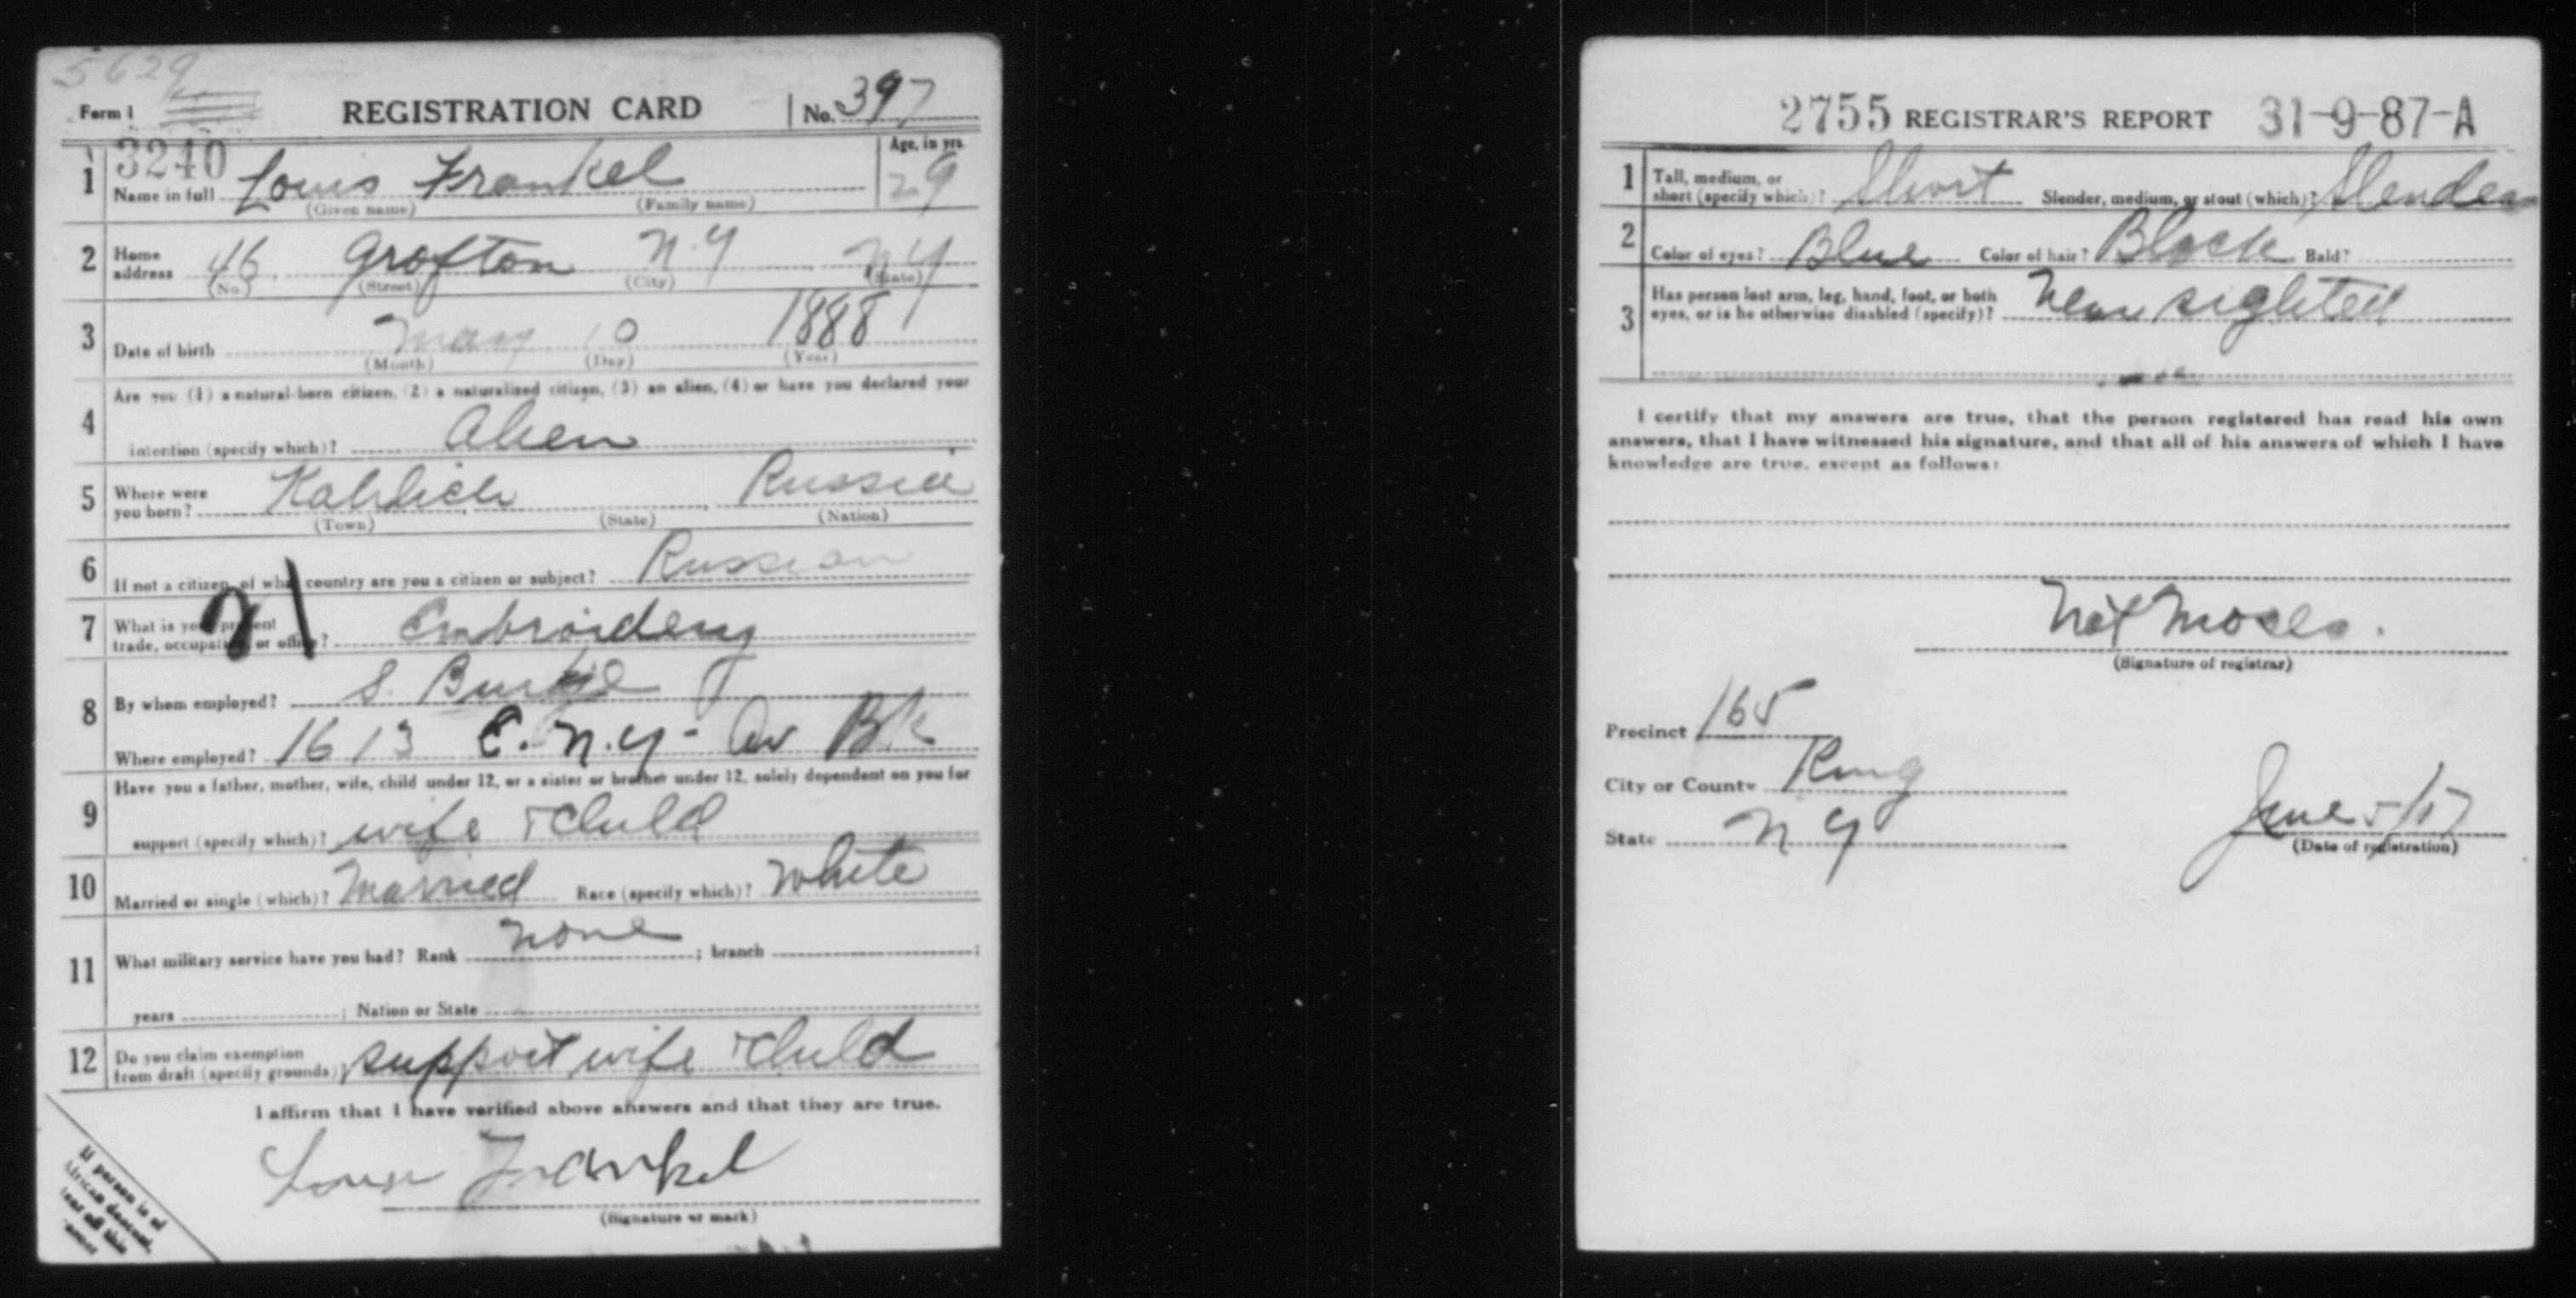 5629
Form 1 REGISTRATION CARD No. 397
3240
1 Name in full Louis Frankel Age, in yrs. 29
(Given name) (Family name)
2 Home address 46 Grafton N.Y N Y
(No.) (Street) (City) (State)
3 Date of birth May 10 1888
(Month) (Day) (Year)
4 Are you (1) a natural-born citizen, (2) a naturalized citizen, (3) an alien, (4) or have you declared your
intention (specify which)? Alien
5 Where were you born? Russia
(Town) (State) (Nation)
6 If not a citizen, of what country are you a citizen or subject? Russian
21
7 What is your present trade, occupation, or office? Embroidery
8 By whom employed? S.
Where employed? 1613 E. N.Y. Av Bk
9 Have you a father, mother, wife, child under 12, or a sister or brother under 12, solely dependent on you for
support (specify which)? wife & child
10 Married or single (which)? Married Race (specify which)? White
11 What military service have you had? Rank none ; branch ;
years ; Nation or State
12 Do you claim exemption from draft (specify grounds)? support wife & child
I affirm that I have verified above answers and that they are true.
Louis Frankel
(Signature or mark)
If person is of
African descent,
tear off this
corner
2755 REGISTRAR'S REPORT 31-9-87-A
1 Tall, medium, or short (specify which)? Short Slender, medium, or stout (which)? Slender
2 Color of eyes? Blue Color of hair? Black Bald?
3 Has person lost arm, leg, hand, foot, or both eyes, or is he otherwise disabled (specify)? Near sighted
I certify that my answers are true, that the person registered has read his own
answers, that I have witnessed his signature, and that all of his answers of which I have
knowledge are true, except as follows:
Nat Moses.
(Signature of registrar)
Precinct 165
City or County King
State N Y
June 5/17
(Date of registration)